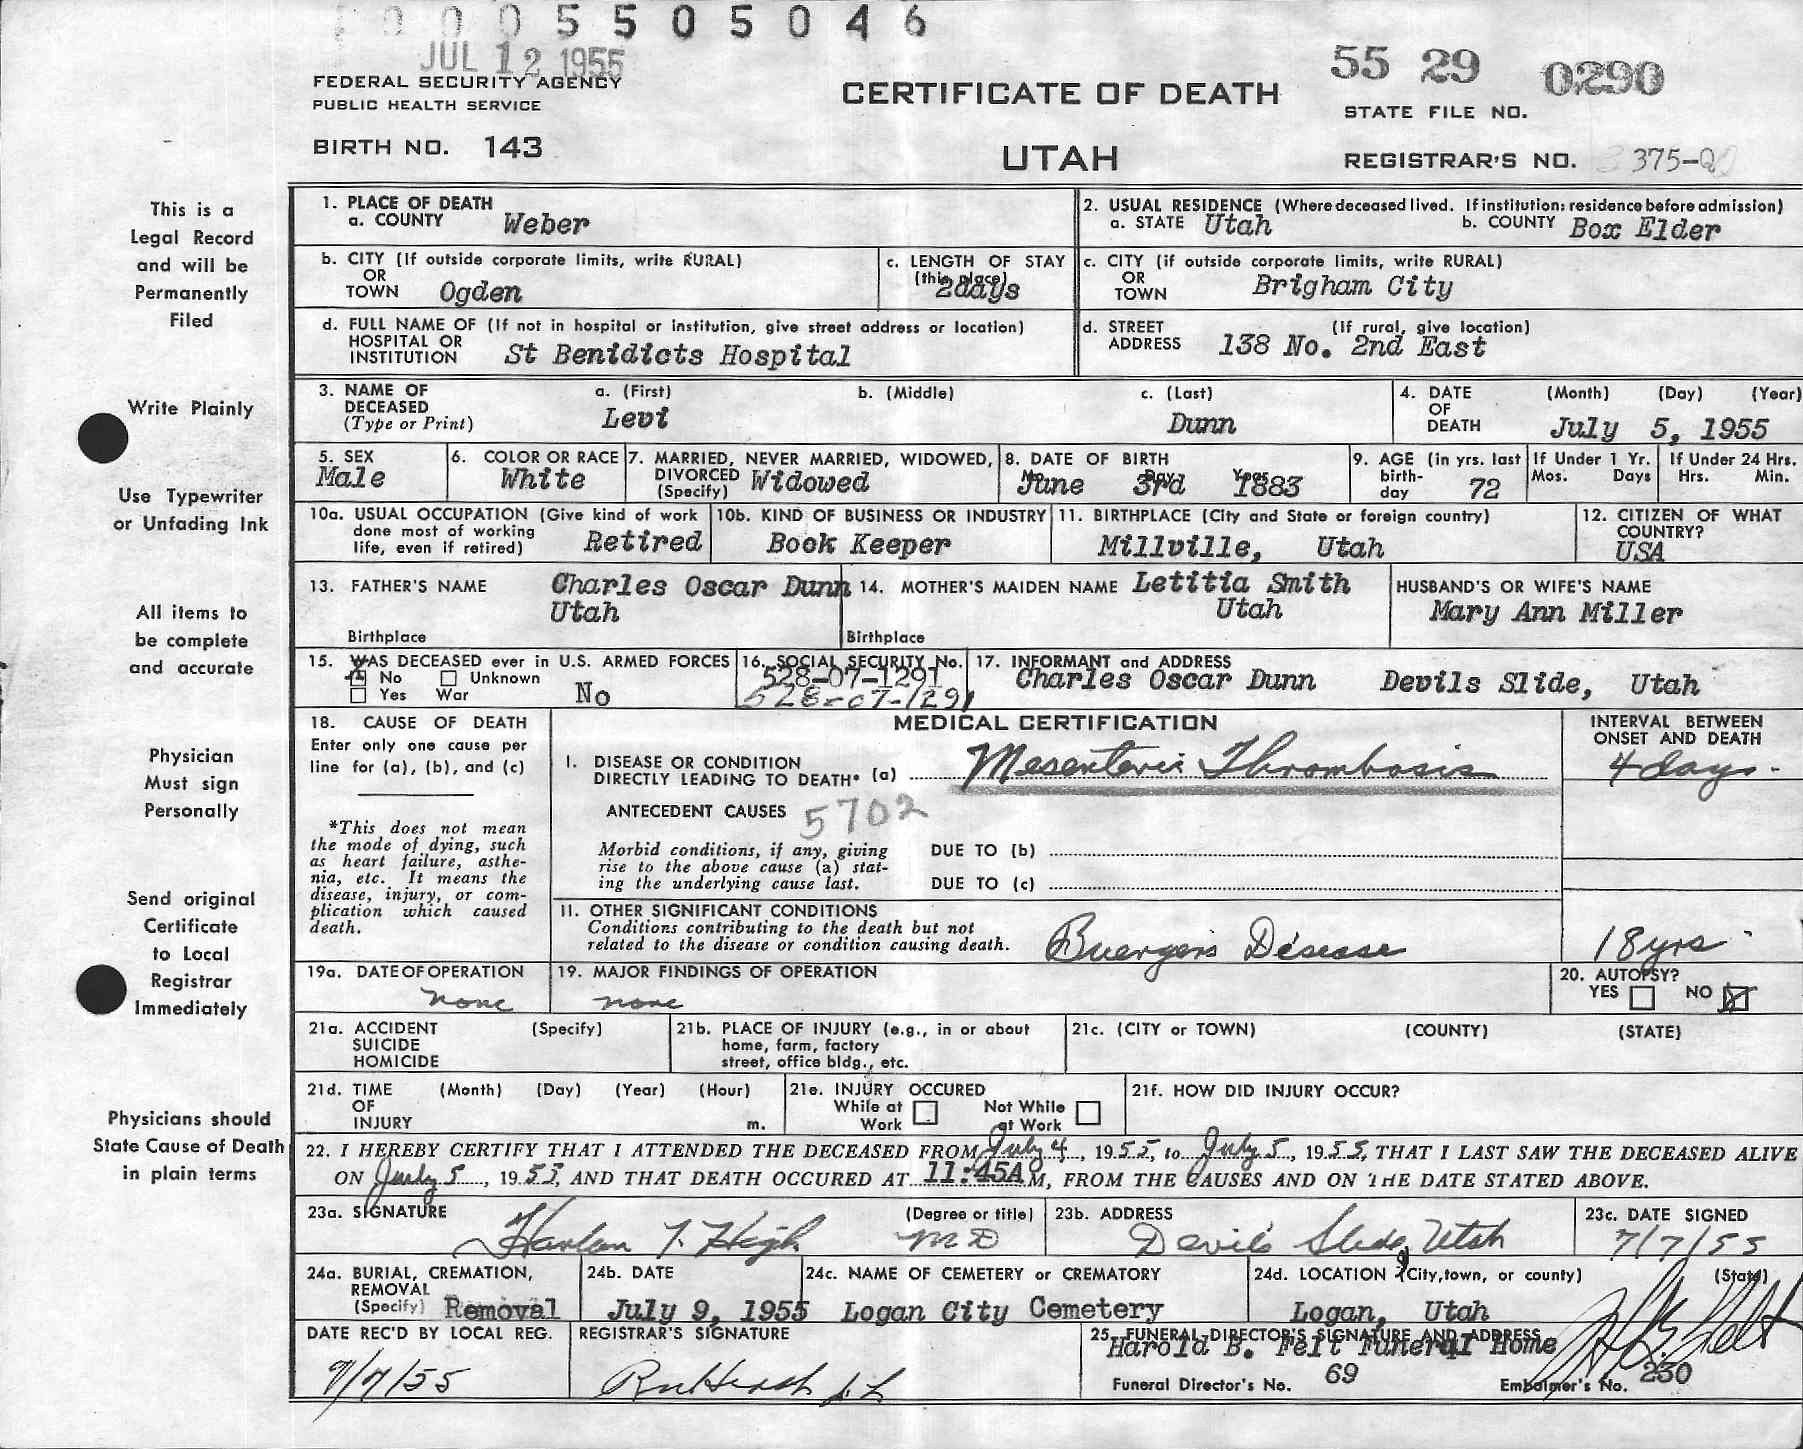 0 0 0 5 5 0 5 0 4 6
JUL 12 1955
55 29 0290
FEDERAL SECURITY AGENCY
PUBLIC HEALTH SERVICE
CERTIFICATE OF DEATH
STATE FILE NO.
BIRTH NO. 143
UTAH
REGISTRAR'S NO. 375-Q
This is a
Legal Record
and will be
Permanently
Filed
Write Plainly
Use Typewriter
or Unfading Ink
All items to
be complete
and accurate
Physician
Must sign
Personally
Send original
Certificate
to Local
Registrar
Immediately
Physicians should
State Cause of Death
in plain terms
1. PLACE OF DEATH
a. COUNTY Weber
2. USUAL RESIDENCE (Where deceased lived. If institution: residence before admission)
a. STATE Utah b. COUNTY Box Elder
b. CITY (If outside corporate limits, write RURAL)
OR
TOWN Ogden
c. LENGTH OF STAY
(this place)
2days
c. CITY (if outside corporate limits, write RURAL)
OR
TOWN Brigham City
d. FULL NAME OF (If not in hospital or institution, give street address or location)
HOSPITAL OR
INSTITUTION St Benidicts Hospital
d. STREET (If rural, give location)
ADDRESS 138 No. 2nd East
3. NAME OF a. (First) b. (Middle) c. (Last)
DECEASED
(Type or Print) Levi Dunn
4. DATE (Month) (Day) (Year)
OF
DEATH July 5, 1955
5. SEX
Male
6. COLOR OR RACE
White
7. MARRIED, NEVER MARRIED, WIDOWED,
DIVORCED
(Specify) Widowed
8. DATE OF BIRTH
June 3rd 1883
9. AGE (in yrs. last
birth-
day 72
If Under 1 Yr.
Mos. Days
If Under 24 Hrs.
Hrs. Min.
10a. USUAL OCCUPATION (Give kind of work
done most of working
life, even if retired) Retired
10b. KIND OF BUSINESS OR INDUSTRY
Book Keeper
11. BIRTHPLACE (City and State or foreign country)
Millville, Utah
12. CITIZEN OF WHAT
COUNTRY?
USA
13. FATHER'S NAME Charles Oscar Dunn
Utah
Birthplace
14. MOTHER'S MAIDEN NAME Letitia Smith
Utah
Birthplace
HUSBAND'S OR WIFE'S NAME
Mary Ann Miller
15. WAS DECEASED ever in U.S. ARMED FORCES
No Unknown
Yes War No
16. SOCIAL SECURITY No.
528-07-1291
528-07-1291
17. INFORMANT and ADDRESS
Charles Oscar Dunn Devils Slide, Utah
18. CAUSE OF DEATH
Enter only one cause per
line for (a), (b), and (c)
*This does not mean
the mode of dying, such
as heart failure, asthe-
nia, etc. It means the
disease, injury, or com-
plication which caused
death.
MEDICAL CERTIFICATION
INTERVAL BETWEEN
ONSET AND DEATH
I. DISEASE OR CONDITION
DIRECTLY LEADING TO DEATH* (a) Mesenteric Thrombosis 4 days.
ANTECEDENT CAUSES 5702
Morbid conditions, if any, giving
rise to the above cause (a) stat-
ing the underlying cause last.
DUE TO (b)
DUE TO (c)
II. OTHER SIGNIFICANT CONDITIONS
Conditions contributing to the death but not
related to the disease or condition causing death. Buergers Disease 18 yrs
19a. DATE OF OPERATION
none
19. MAJOR FINDINGS OF OPERATION
none
20. AUTOPSY?
YES NO
21a. ACCIDENT (Specify)
SUICIDE
HOMICIDE
21b. PLACE OF INJURY (e.g., in or about
home, farm, factory
street, office bldg., etc.
21c. (CITY or TOWN) (COUNTY) (STATE)
21d. TIME (Month) (Day) (Year) (Hour)
OF
INJURY m.
21e. INJURY OCCURED
While at Work Not While at Work
21f. HOW DID INJURY OCCUR?
22. I HEREBY CERTIFY THAT I ATTENDED THE DECEASED FROM July 4, 1955, to July 5, 1955, THAT I LAST SAW THE DECEASED ALIVE
ON July 5, 1953, AND THAT DEATH OCCURED AT 11:45A M, FROM THE CAUSES AND ON THE DATE STATED ABOVE.
23a. SIGNATURE (Degree or title)
Harlan T. High MD
23b. ADDRESS
Devil's Slide, Utah
23c. DATE SIGNED
7/7/55
24a. BURIAL, CREMATION,
REMOVAL
(Specify) Removal
24b. DATE
July 9, 1955
24c. NAME OF CEMETERY or CREMATORY
Logan City Cemetery
24d. LOCATION (City, town, or county) (State)
Logan, Utah
DATE REC'D BY LOCAL REG.
7/7/55
REGISTRAR'S SIGNATURE
25. FUNERAL DIRECTOR'S SIGNATURE AND ADDRESS
Harold B. Felt Funeral Home
Funeral Director's No. 69
Embalmer's No. 230